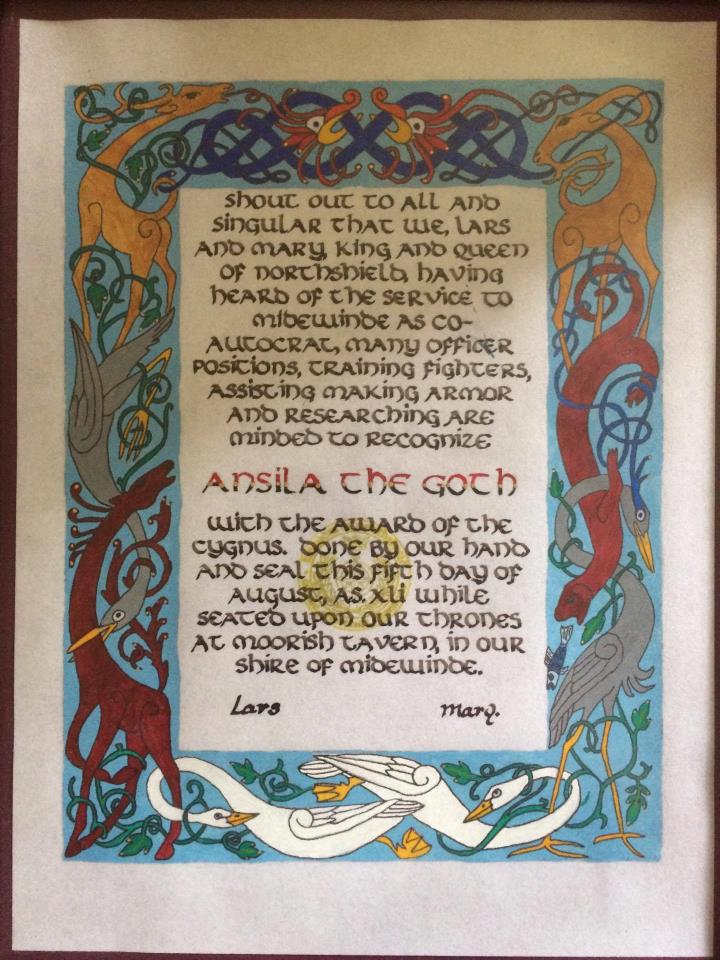 Shout out to all and
singular that we, Lars
and Mary, King and Queen
of Northshield, having
heard of the service to
Midewinde as co-
autocrat, many officer
positions, training fighters,
assisting making armor
and researching are
minded to recognize
Ansila the Goth
with the Award of the
Cygnus. Done by our hand
and seal this fifth day of
August, A.S. XLI while
seated upon our thrones
at Moorish Tavern, in our
Shire of Midewinde.
Lars Mary.